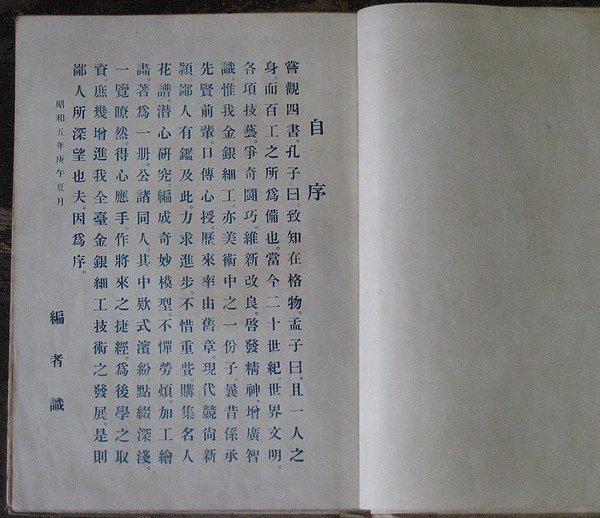 自序
嘗觀四書。孔子曰。致知在格物。孟子曰。且一人之
身。而百工之所為備也。當今二十世紀世界文明。
各項技藝。爭奇鬪巧。維新改良。啓發精神。增廣智
識。惟我金銀細工。亦美術中之一份子。曩昔係承
先賢前輩。口傳心授。歷來率由舊章。現代競尙新
穎。鄙人有鑑及此。力求進步。不惜重貲。購集名人
花譜。潜心研究。編成奇妙模型。不憚勞煩。加工繪
畵。著為一册。公諸同人。其中欵式濱紛。點綴深淺。
一覽瞭然。得心應手。作將來之捷經。為後學之取
資。庶幾增進我全臺金銀細工技術之發展。是則
鄙人所深望也夫。因為序。
昭和五年庚午夏月
編者識